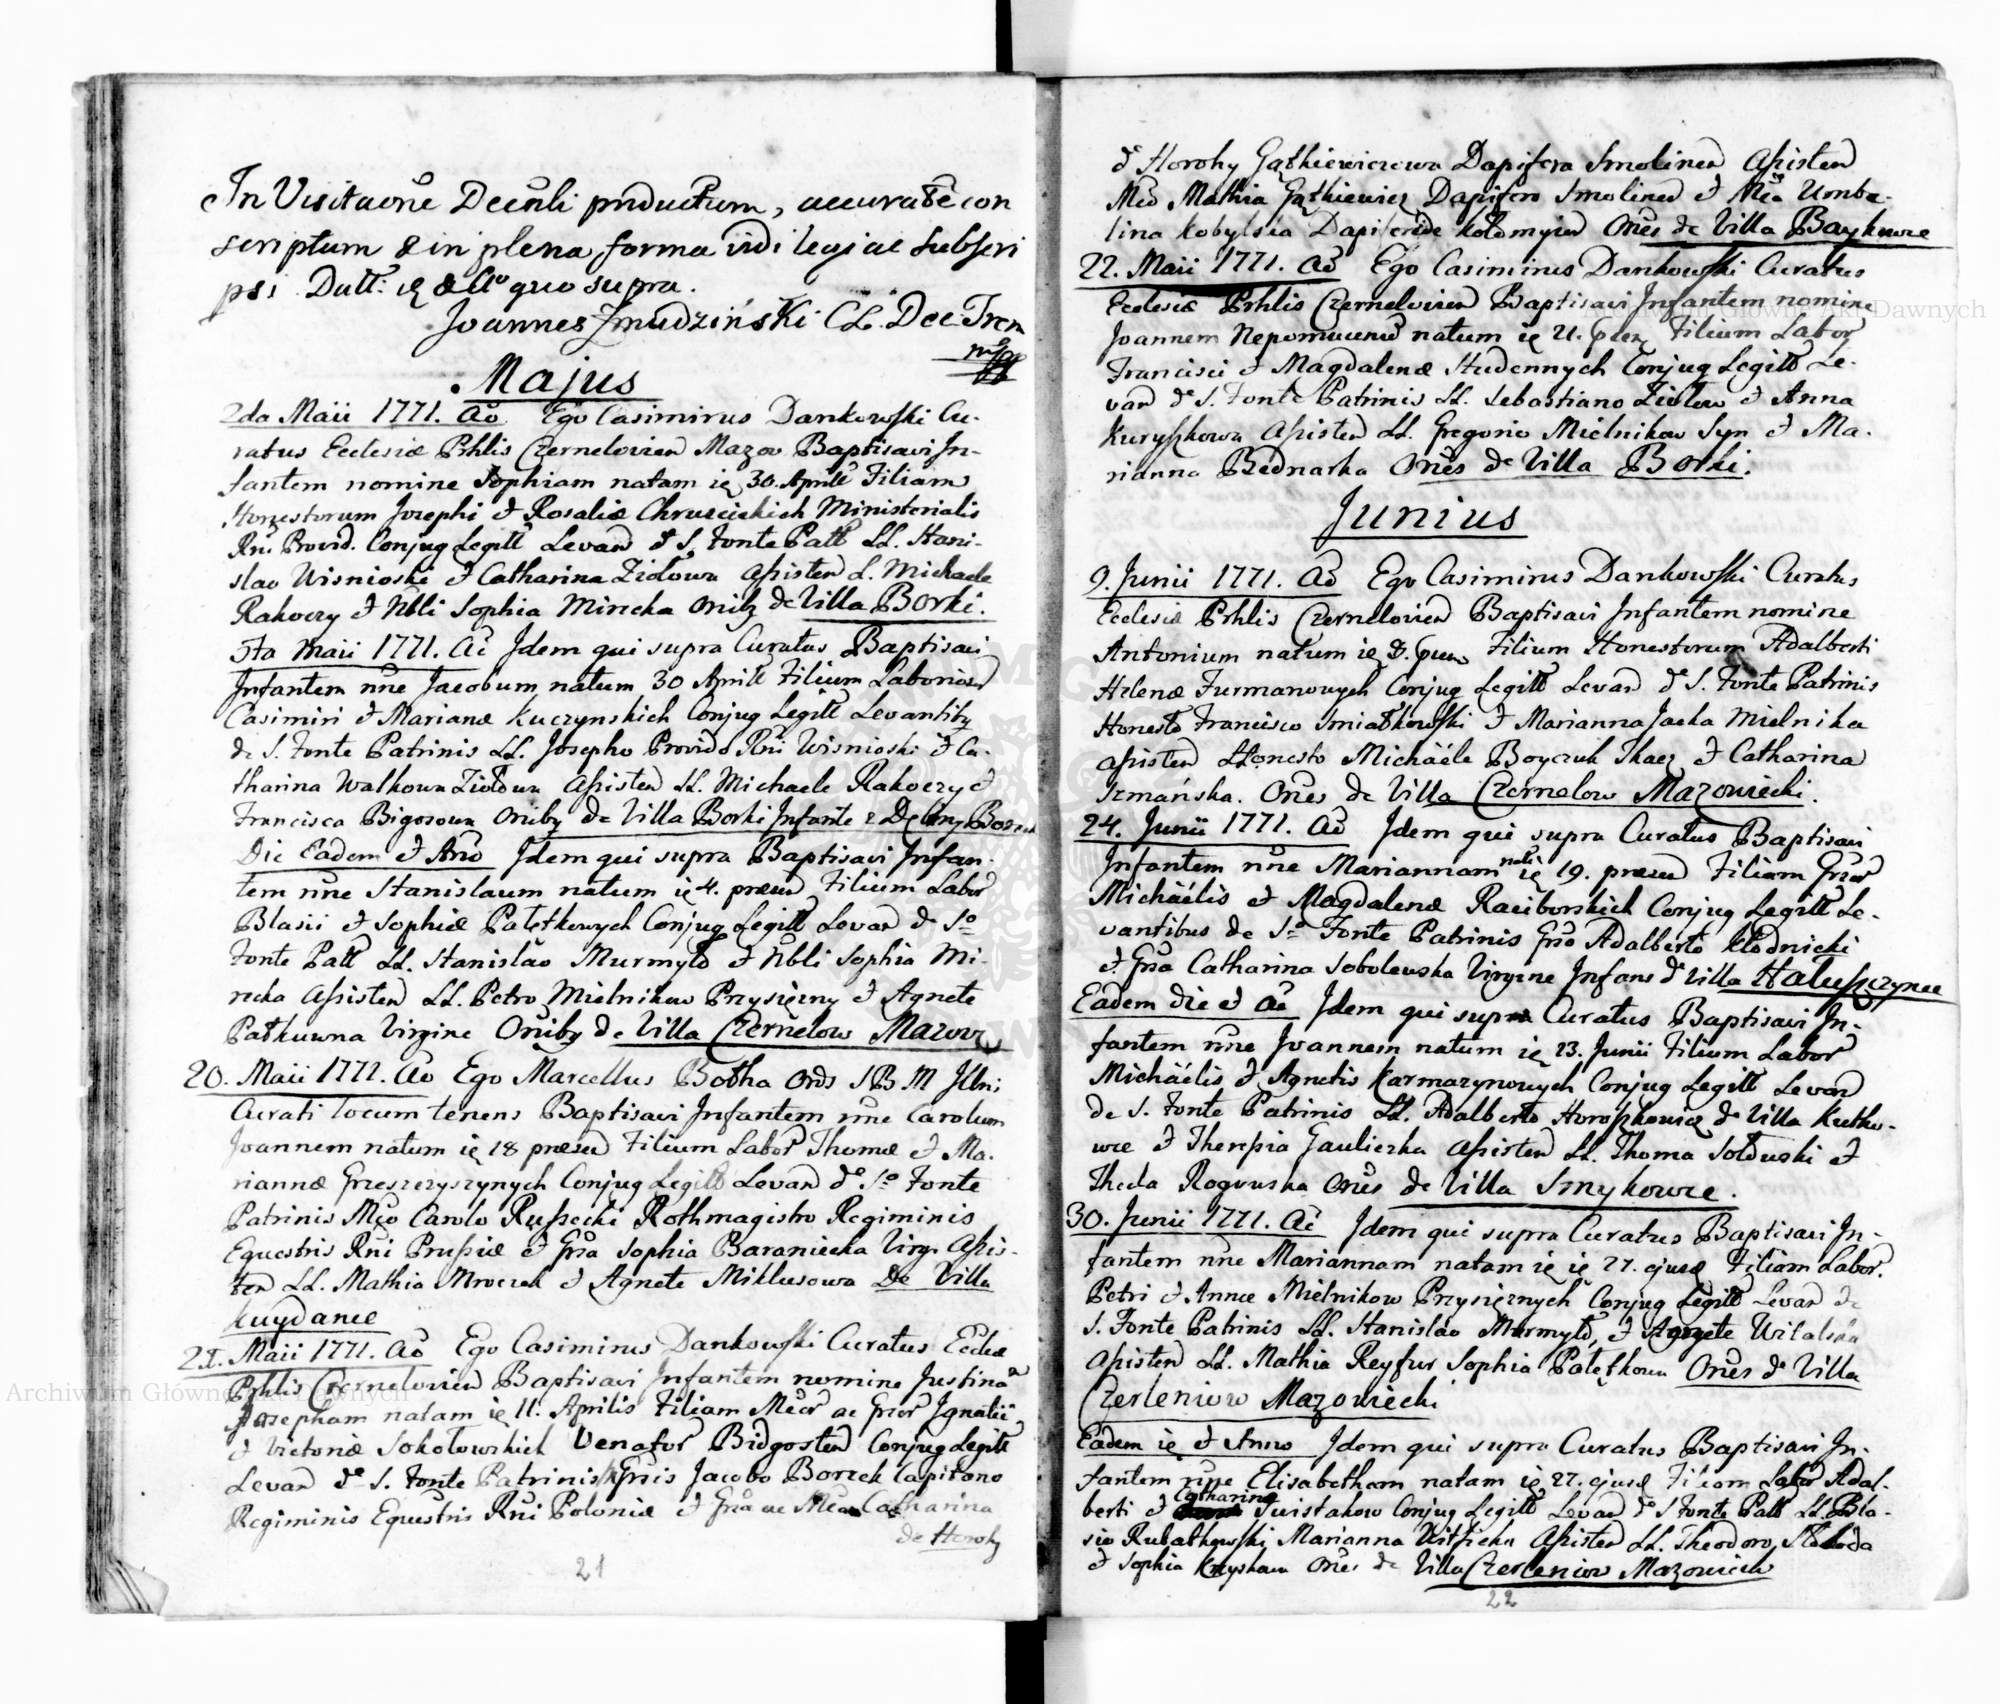 In Visitaone Decnli pnductum, accurate con
scriptum & in plena forma vidi legi ac subscri
psi. Datt. ię & Ao quo supra.
Joannes Zmudziński CL. Dec. Trem
mpp
Majus
2da Maii 1771. Ao Ego Casimirus Dankowski Cu-
ratus Ecclesiæ Prhlis Czernelovien Mazov Baptisavi In-
fantem nomine Sophiam natam ię 30. Aprill Filiam
Honestorum Josephi & Rosaliæ Chruscickich Ministerialis
Rni Provid. Conjug Legitt Levand d S. Fonte Patt LL. Stani-
slao Wisnioski & Catharina Ziołowa Assisten L. Michaele
Rakoczy & Nbli Sophia Mirecka Onibz de Villa Borki.
5ta Maii 1771. Ao Idem qui supra Curatus Baptisavi
Infantem nne Jacobum natum 30 Aprill Filium Laborios
Casimiri & Marianæ Kuczynskich Conjug Legitt Levantibz
de S. Fonte Patrinis LL. Josepho Provido Rni Wisnioski & Ca-
tharina Walkowa Ziołowa Assisten LL. Michaele Rakoczy &
Francisca Bigosowa Onibz de Villa Borki Infante
Die Eadem & Ano Idem qui supra Baptisavi Infan-
tem nne Stanislaum natum ię 4. præsen Filium Labor
Blasii & Sophiæ Patętkowych Conjug Legitt Levan d So
Fonte Patt LL. Stanislao Murmyło & Nbli Sophia Mi-
recka Assisten LL. Petro Mielnikow Przysięzny & Agnete
Pałkuwna Virgine Onibz de Villa Czernelow Mazov
20. Maii 1771. Ao Ego Marcellus Botha Ords SBM Illni
Curati locum tenens Baptisavi Infantem nne Carolum
Joannem natum ię 18 præsen Filium Labor Thomæ & Ma-
riannæ Grzeszczyszynych Conjug Legitt Levan d So Fonte
Patrinis Mco Carolo Russecki Rothmagistro Regiminis
Equestris Rni Prussiæ & Gsa Sophia Baraniecka Virg. Assis-
ten LL. Mathia Mroczek & Agnete Miklusowa De Villa
Kuydance
21. Maii 1771. Ao Ego Casimirus Dankowski Curatus Eccliæ
Prhlis Czernelovien Baptisavi Infantem nomine Justinam
Josepham natam ię 11. Aprilis Filiam Mcor ac Gsor Ignatii
& Victoriæ Sokołowskich Venator Bidgosten Conjug Legitt
Levan de S. Fonte Patrinis Gsis Jacobo Borzek Capitano
Regiminis Equestris Rni Poloniæ & Gsa ac Mca Catharina
de Horohy
21
d Horohy Gątkiewiczowa Dapifera Smolinen Assisten
Mco Mathia Gątkiewicz Dapifero Smolinen & Mca Umbe-
lina Kobylska Dapiferide Kołomyien Ones de Villa Baykowce
22. Maii 1771. Ao Ego Casimirus Dankowski Curatus
Ecclesiæ Prhlis Czernelovien Baptisavi Infantem nomine
Joannem Nepomucenu natum ię 21. Filium Labor
Francisci & Magdalenæ Studennych Conjug Legitt Le-
van de S. Fonte Patrinis LL. Sebastiano Ziolow & Anna
Kuryszkowa Assisten LL. Gregorio Mielnikow Syn & Ma-
rianna Bednarka Ones de Villa Borki.
Junius
9. Junii 1771. Ao Ego Casimirus Dankowski Curatus
Ecclesiæ Prhlis Czernelovien Baptisavi Infantem nomine
Antonium natum ię 8. Filium Honestorum Adalberti
Helenæ Furmanowych Conjug Legitt Levan d S. Fonte Patrinis
Honesto Francisco Smiatkowski & Marianna Jacka Mielnika
Assisten Honesto Michäele Boyczuk Tkacz & Catharina
Szmańska. Ones de Villa Czernelow Mazowiecki.
24. Junii 1771. Ao Idem qui supra Curatus Baptisavi
Infantem nne Mariannam nata ię 19. præsen Filiam Gsor
Michäelis & Magdalenæ Raciborskich Conjug Legitt Le-
vantibus de So Fonte Patrinis Gso Adalberto Kłodnicki
& Gsa Catharina Sobolewska Virgine Infans d Villa Haluszczynce
Eadem die & Ao Idem qui supra Curatus Baptisavi In-
fantem nne Joannem natum ię 23. Junii Filium Labor
Michäelis & Agnetis Karmazynowych Conjug Legitt Levan
de S. Fonte Patrinis LL. Adalberto Horoszkowicz de Villa Kutko-
wce & Theressia Gauliczka Assisten LL. Thoma Sołduski &
Thecla Rogowska Ones de Villa Smykowce.
30. Junii 1771. Ao Idem qui supra Curatus Baptisavi In-
fantem nne Mariannam natam ię ię 27. ejusd Filiam Labor.
Petri & Annæ Mielnikow Przysięznych Conjug Legitt Levan de
S. Fonte Patrinis LL. Stanisłao Murmyło, & Agnete Witalska
Assisten LL. Mathia Reyfur Sophia Patętkowa Ones de Villa
Czerleniow Mazowiecki
Eadem ię & Anno Idem qui supra Curatus Baptisavi In-
fantem nne Elisabetham natam ię 27. ejusd Filiam Labor Adal-
berti & Catharinæ Swistakow Conjug Legitt Levan d S Fonte Patt LL. Bla-
sio Rubatkowski, Marianna Assisten LL. Theodoro Słoboda
& Sophia Krzyskowa Ones de Villa Czerleniow Mazowiecki
22
Archiwum Główne Akt Dawnych
Archiwum Główne Akt Dawnych